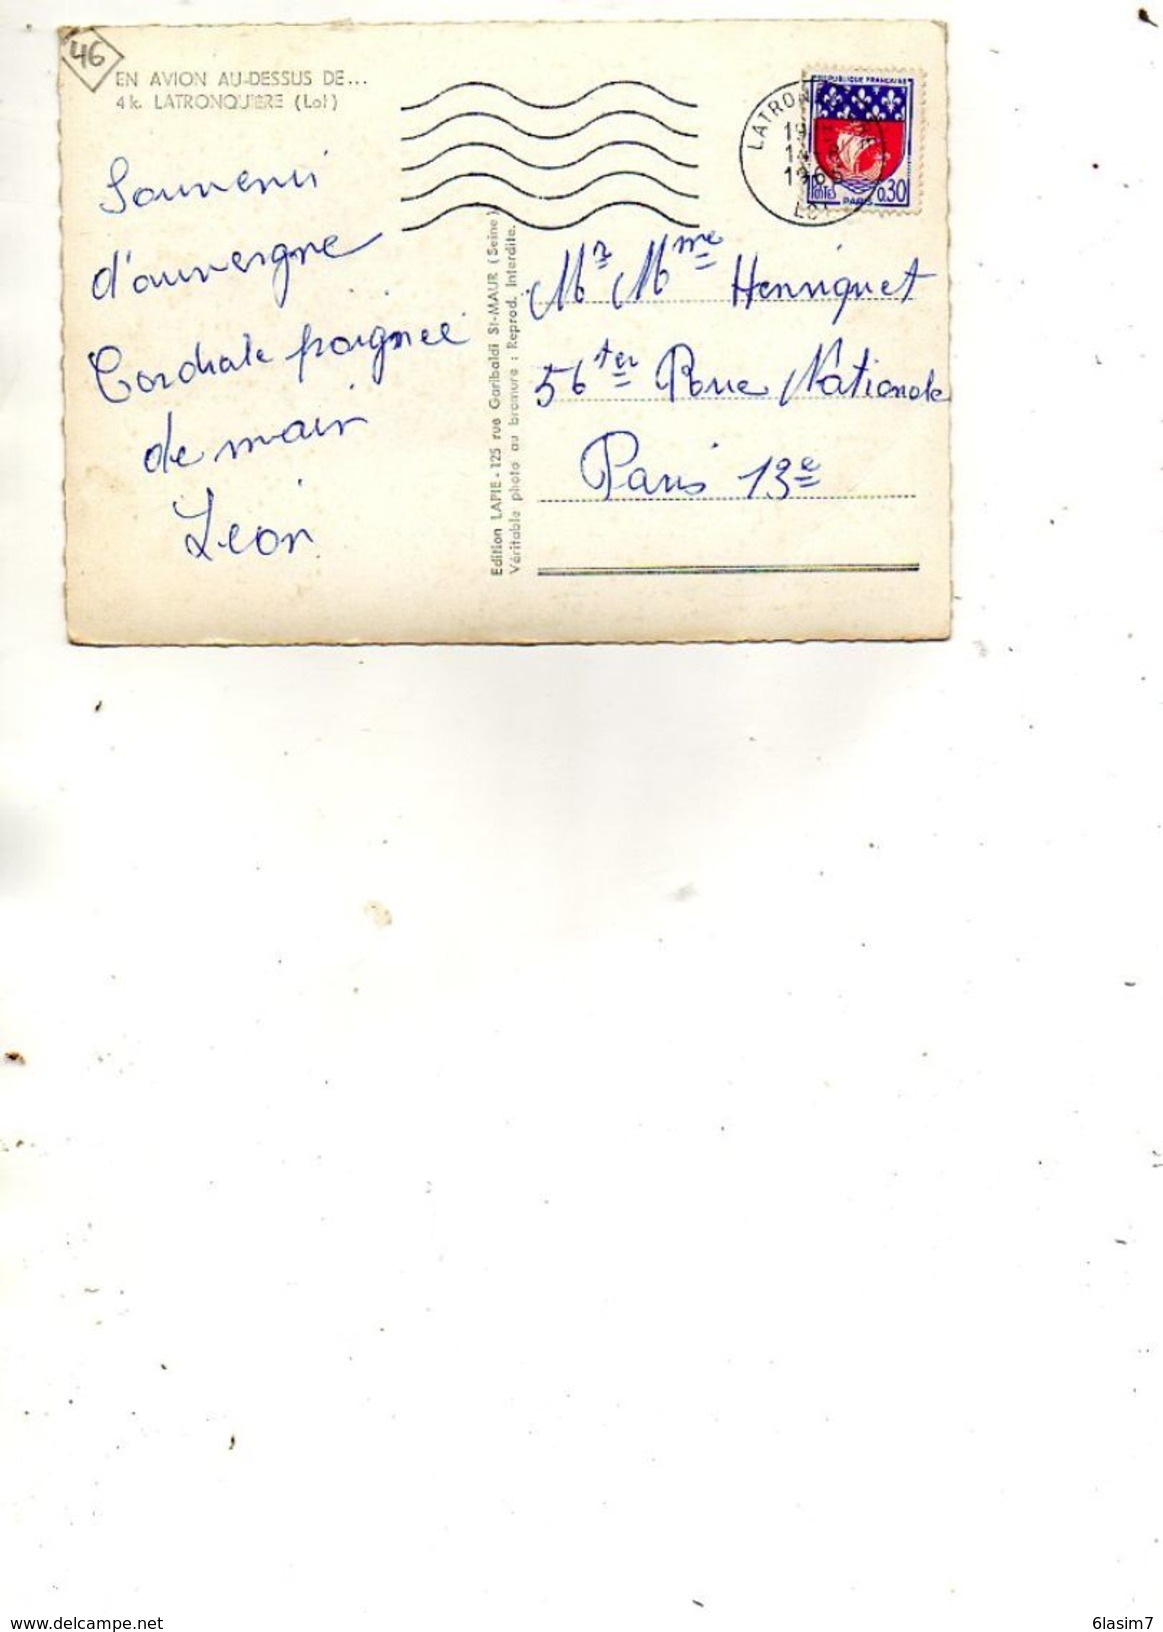 46
EN AVION AU-DESSUS DE...
4 k. LATRONQUIÈRE (Lot)
Souvenir
d'auvergne
Cordiale poignée
de main
Léon
Edition LAPIE - 125 rue Garibaldi St-MAUR (Seine)
Véritable photo au bromure : Reprod. Interdite.
REPUBLIQUE FRANCAISE
POSTES
PARIS
0,30
LOT
Mr Mme Henriquet
56 ter Rue Nationale
Paris 13e
www.delcampe.net
6lasim7